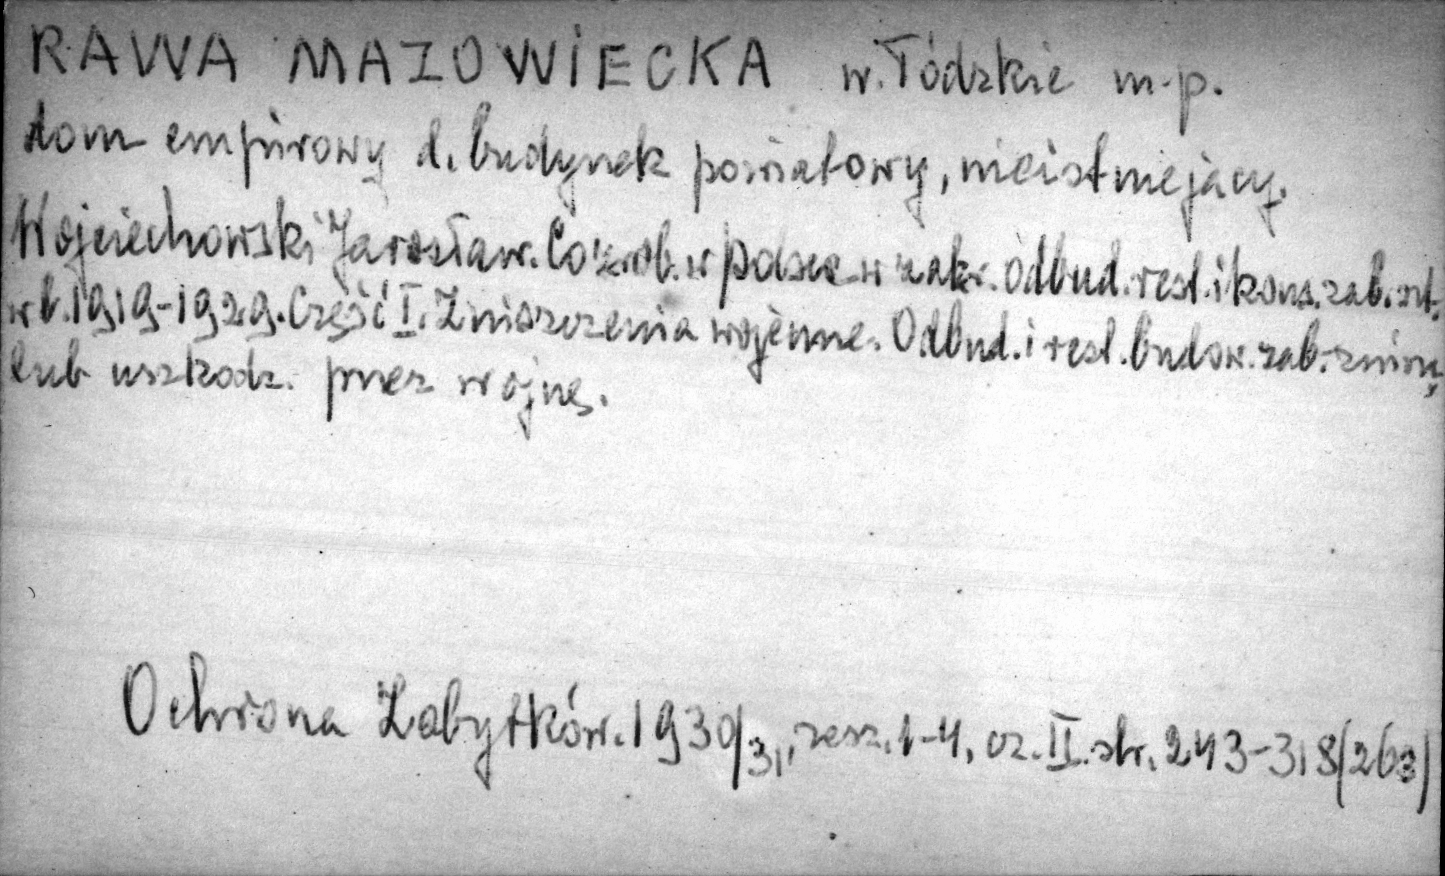 RAWA MAZOWIECKA w. Łódzkie m.p.
dom empirowy d. budynek powiatowy, nieistniejący.
Wojciechowski Jarosław. Co zrob. w Polsce w zakr. odbud. rest. i kons. zab. szt.
w l. 1919-1929. Część I. Zniszczenia wojenne. Odbud. i rest. budow. zab. zniszcz,
lub uszkodz. przez wojnę.
Ochrona Zabytków. 1930/31, zesz. 1-4, cz. II. str. 243-318(263)